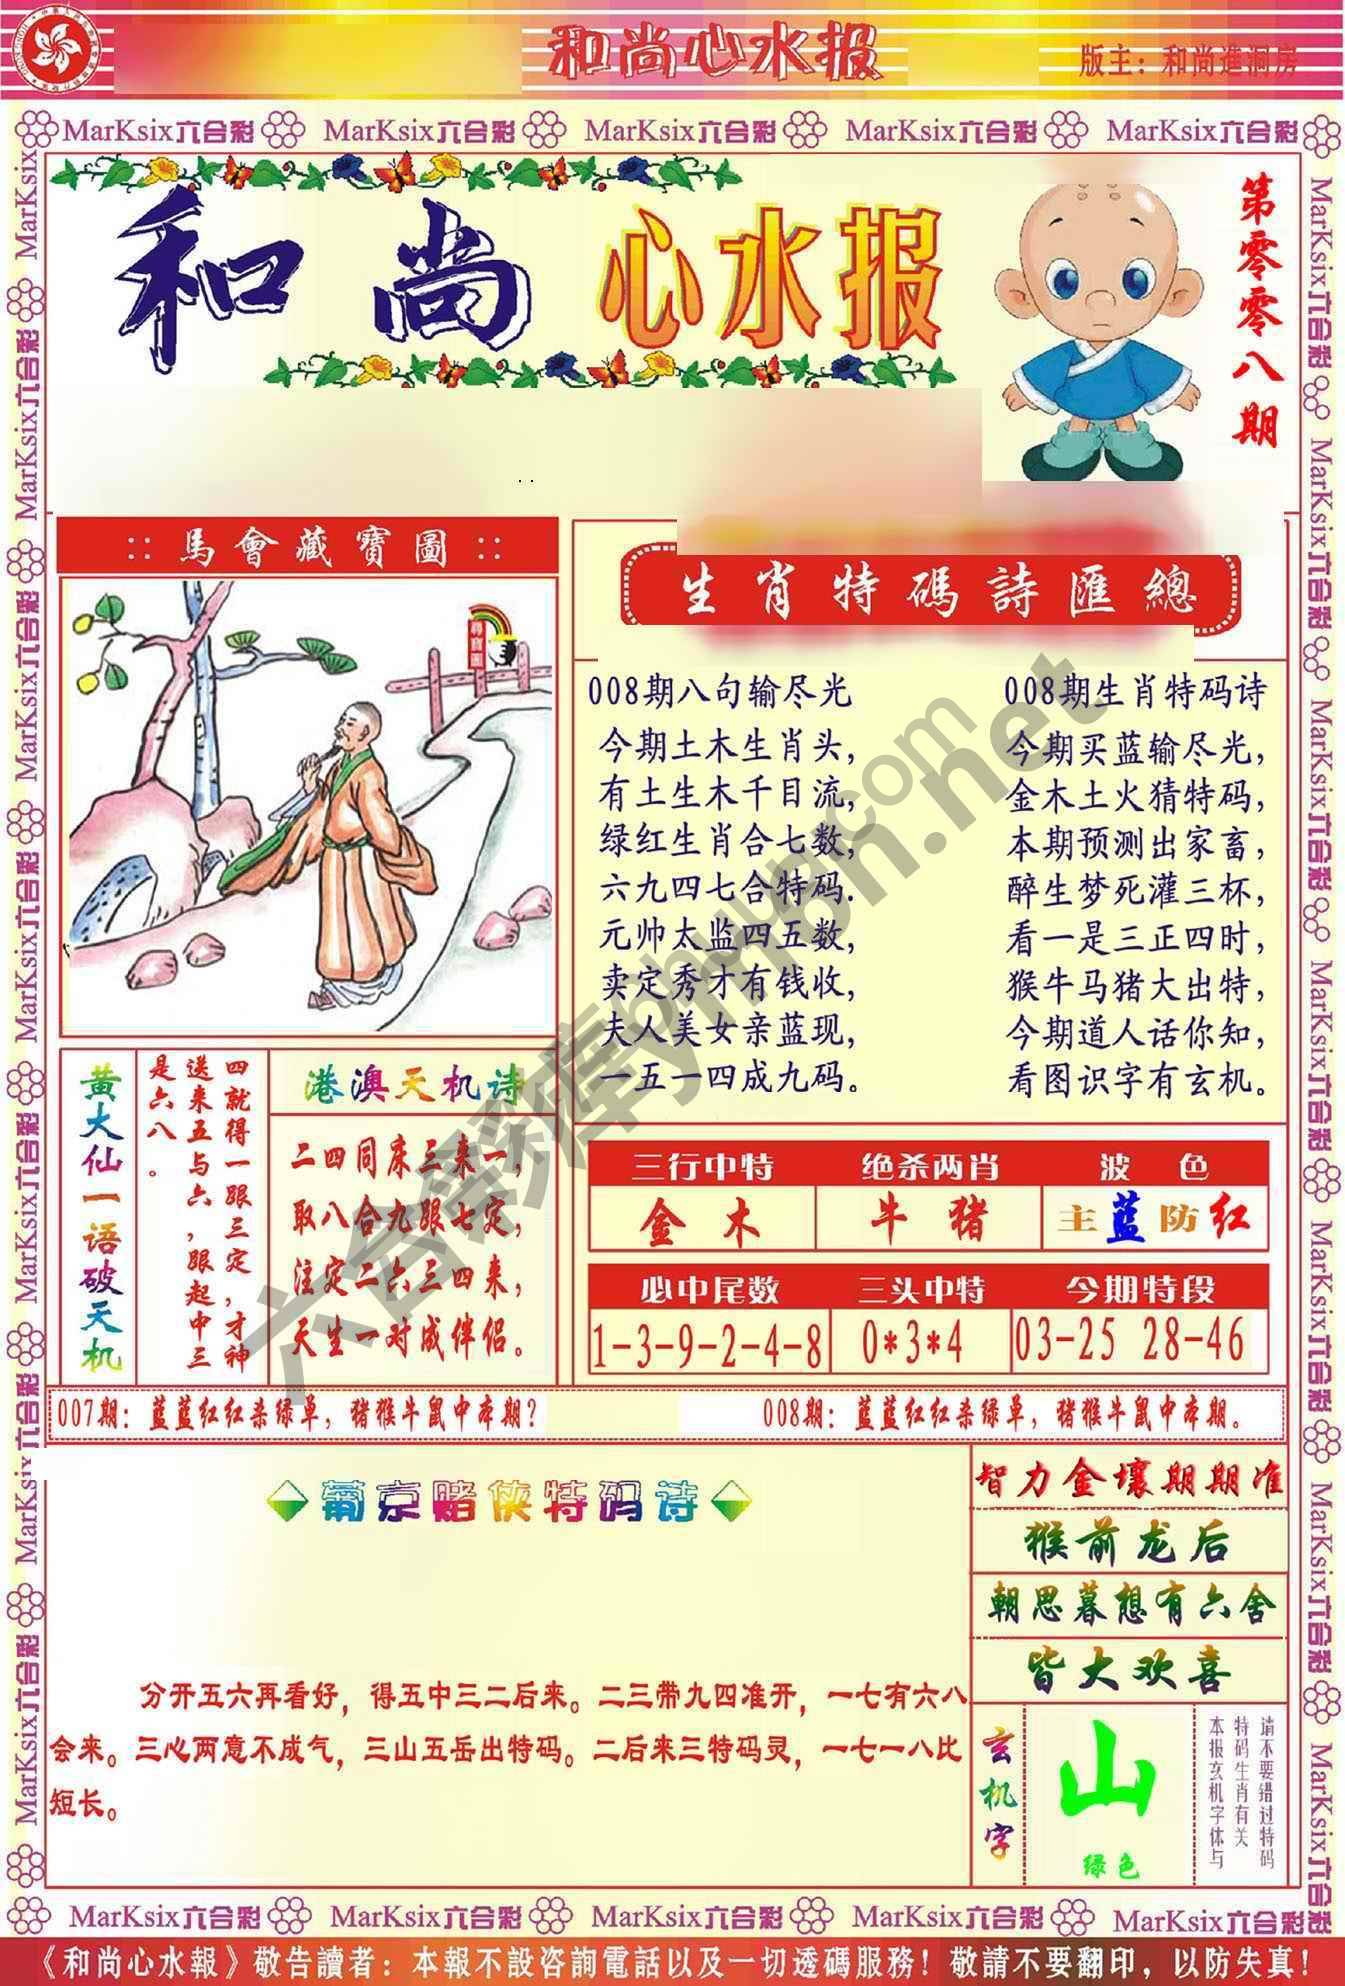 和尚心水报
版主：和尚進洞房
MarKsix六合彩 MarKsix六合彩 MarKsix六合彩 MarKsix六合彩 MarKsix六合彩
和尚心水报
第零零八期
::馬會藏寶圖::
生肖特碼詩匯總
008期八句输尽光
今期土木生肖头，
有土生木千目流，
绿红生肖合七数，
六九四七合特码.
元帅太监四五数，
卖定秀才有钱收，
夫人美女亲蓝现，
一五一四成九码。
008期生肖特码诗
今期买蓝输尽光，
金木土火猜特码，
本期预测出家畜，
醉生梦死灌三杯，
看一是三正四时，
猴牛马猪大出特，
今期道人话你知，
看图识字有玄机。
黄大仙一语破天机
四就得一跟三定，才神
送来五与六，跟起中三
是六八。
港澳天机诗
二四同床三来一，
取八合九跟七定，
注定二六三四来，
天生一对成伴侣。
三行中特 绝杀两肖 波色
金木 牛猪 主蓝防红
必中尾数 三头中特 今期特段
1-3-9-2-4-8 0*3*4 03-25 28-46
007期：蓝蓝红红杀绿单，猪猴牛鼠中本期？
008期：蓝蓝红红杀绿单，猪猴牛鼠中本期。
葡京赌侠特码诗
分开五六再看好，得五中三二后来。二三带九四准开，一七有六八
会来。三心两意不成气，三山五岳出特码。二后来三特码灵，一七一八比
短长。
智力金壤期期准
猴前龙后
朝思暮想有六舍
皆大欢喜
玄机字
山
绿色
请不要错过特码
特码生肖有关
本报玄机字体与
MarKsix六合彩 MarKsix六合彩 MarKsix六合彩 MarKsix六合彩 MarKsix六合彩
《和尚心水報》敬告讀者：本報不設咨詢電話以及一切透碼服務！敬請不要翻印，以防失真！